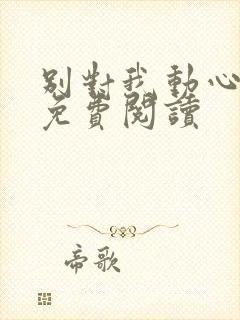 別對我動心
免費閱讀
帝歌